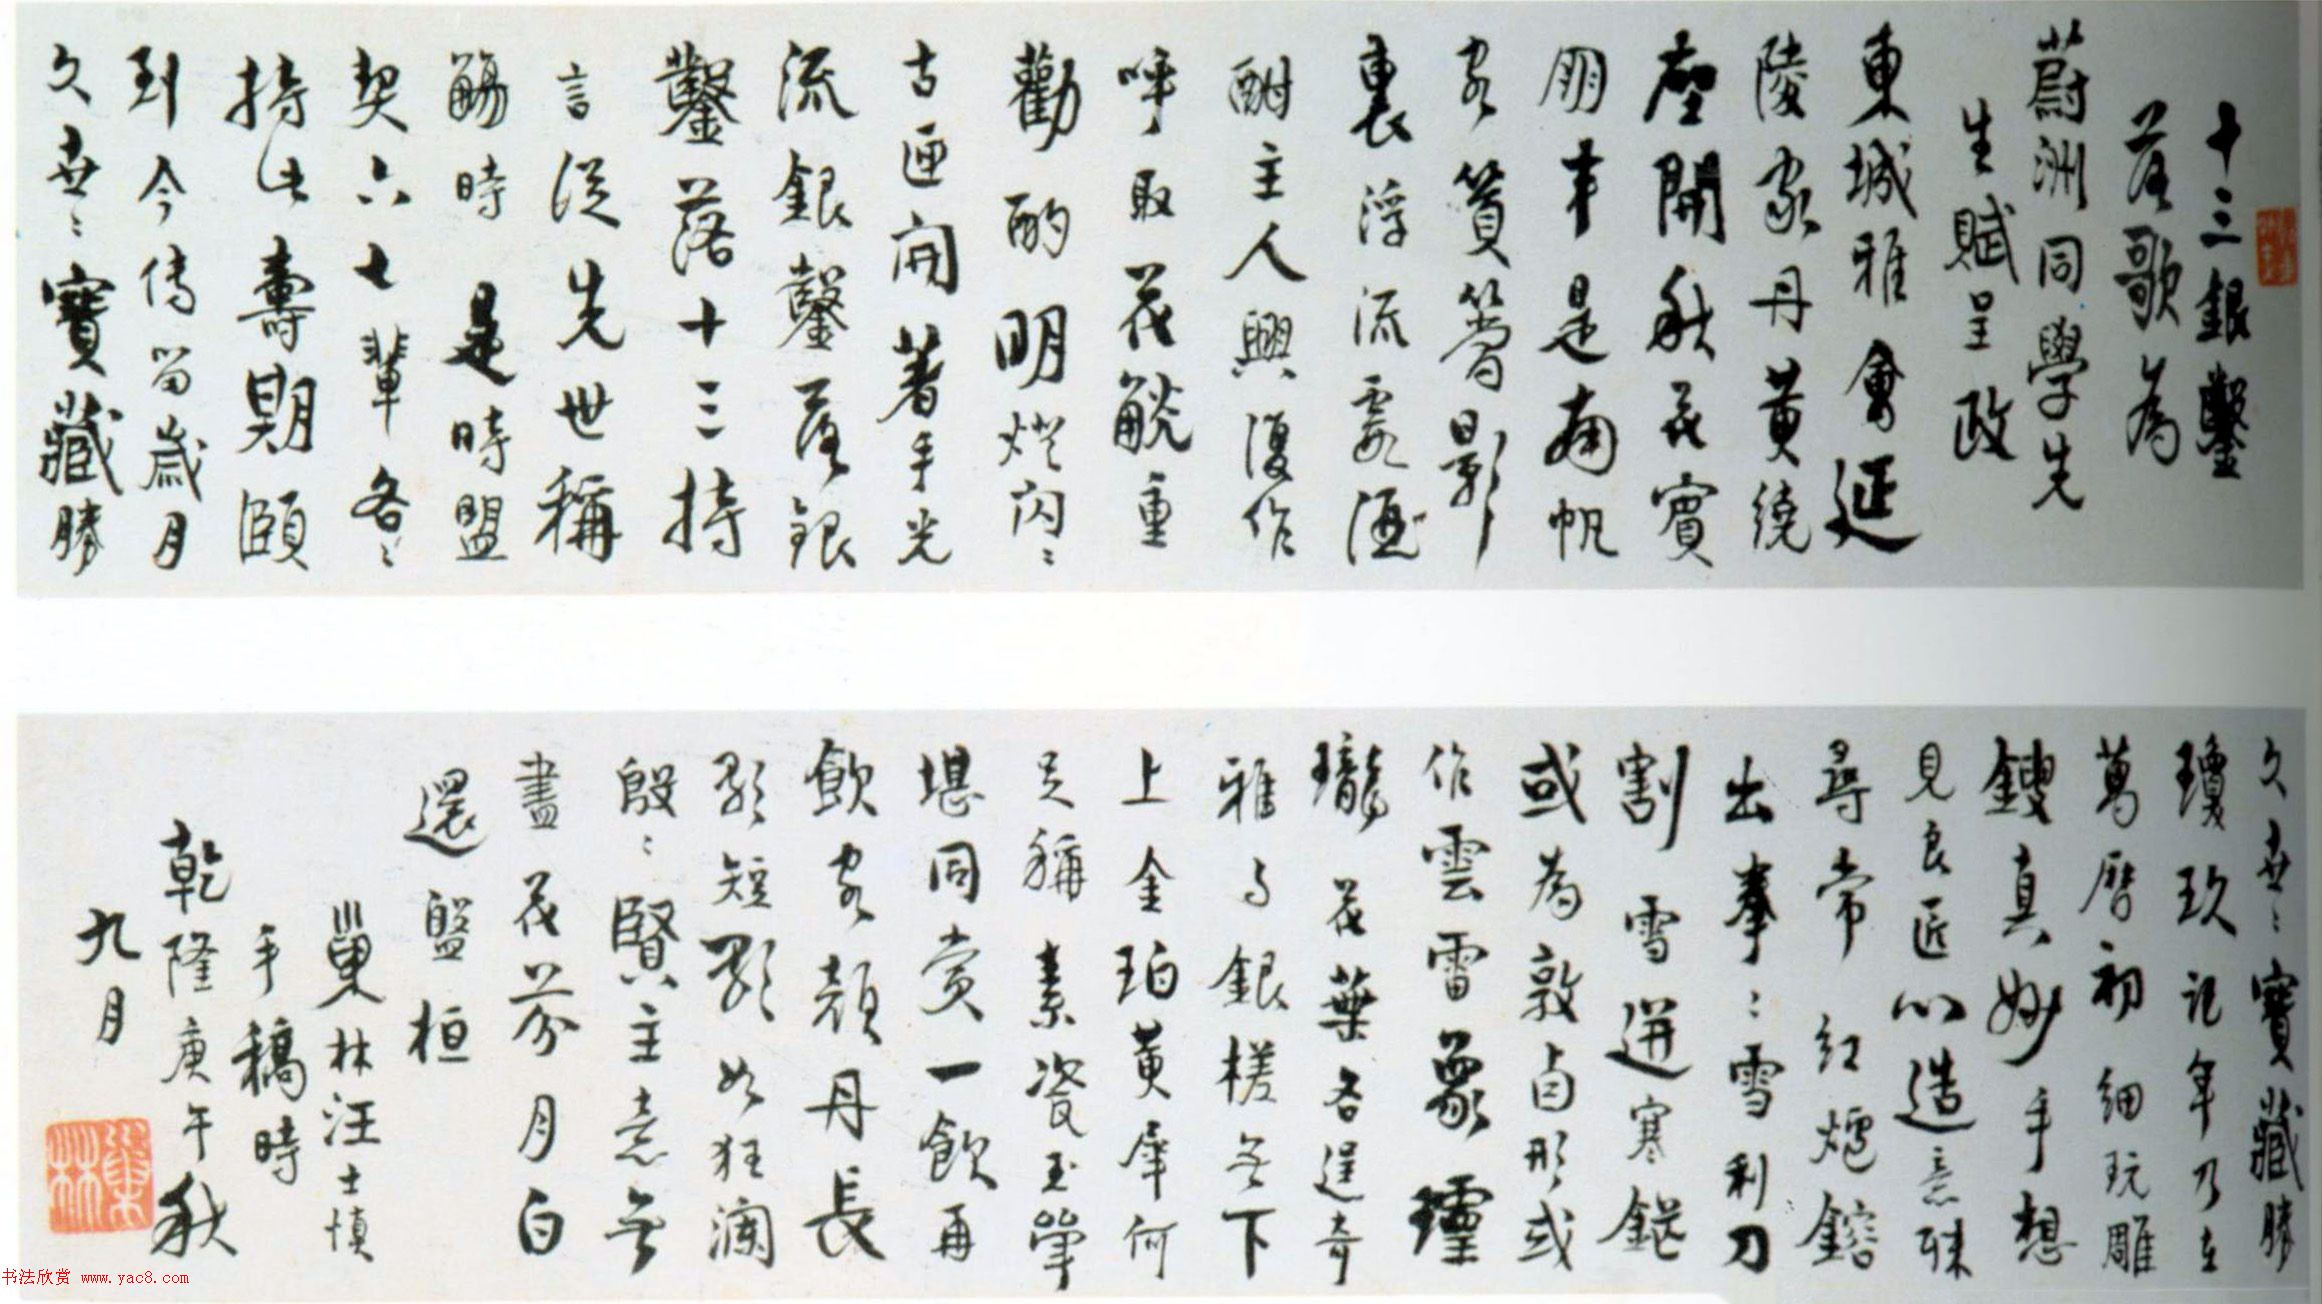 十三銀鑿
落歌為
蔚洲同學先
生賦呈政
東城雅會延
陵家丹黃繞
座開秋花賓
朋半是南帆
客篔簹影
裏浮流霞酒
酣主人興復作
呼取花觥重
勸酌明燈閃〻
古匣開著手光
流銀鑿落銀
鑿落十三持
言從先世稱
觴時是時盟
契六七輩各〻
持此壽期頤
到今傳留歲月
久世〻寶藏勝
久世〻寶藏勝
瓊玖記年乃在
萬曆初細玩雕
鎪真妙手想
見良匠心造意殊
尋常紅爐鎔
出拳〻雪利刀
割雪迸寒鋩
或為敦卣形或
作雲雷象瓏
瓏花葉各逞奇
雅与銀槎無下
上金珀黃犀何
足稱素瓷玉斝
堪同賞一飲再
飲客顏丹長
歌短歌如狂瀾
殷〻賢主意無
盡花芬月白
還盤桓
巢林汪士慎
手稿時
乾隆庚午秋
九月
巢林
书法欣赏 www.yac8.com